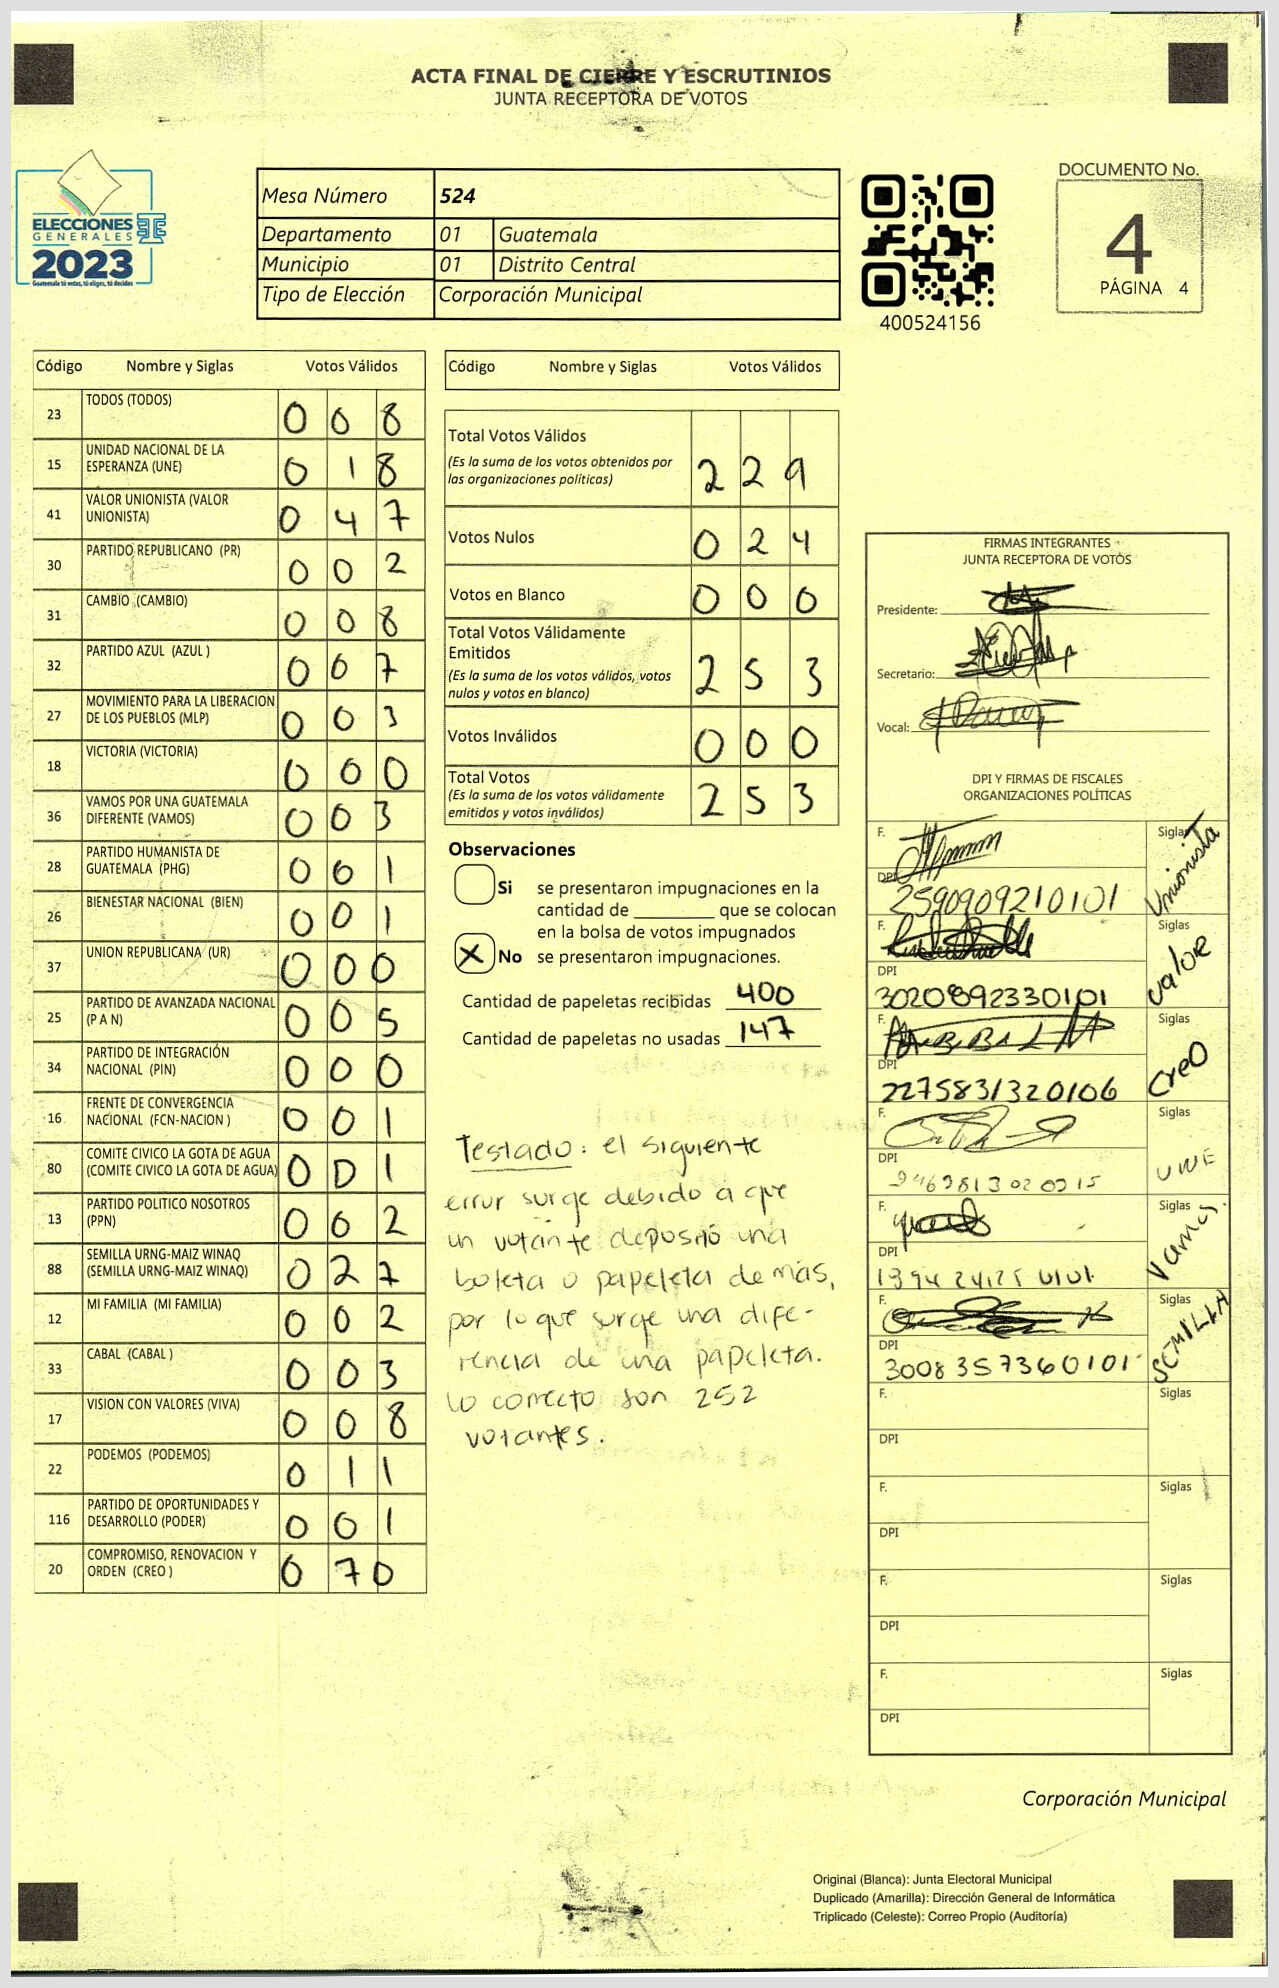 ACTA FINAL DE CIERRE Y ESCRUTINIOS
JUNTA RECEPTORA DE VOTOS
ELECCIONES
GENERALES
2023
Guatemala tú votas, tú eliges, tú decides
Mesa Número 524
Departamento 01 Guatemala
Municipio 01 Distrito Central
Tipo de Elección Corporación Municipal
400524156
DOCUMENTO No.
4
PÁGINA 4
Código Nombre y Siglas Votos Válidos
23 TODOS (TODOS) 0 0 8
15 UNIDAD NACIONAL DE LA ESPERANZA (UNE) 0 1 8
41 VALOR UNIONISTA (VALOR UNIONISTA) 0 4 7
30 PARTIDO REPUBLICANO (PR) 0 0 2
31 CAMBIO (CAMBIO) 0 0 8
32 PARTIDO AZUL (AZUL ) 0 0 7
27 MOVIMIENTO PARA LA LIBERACION DE LOS PUEBLOS (MLP) 0 0 3
18 VICTORIA (VICTORIA) 0 0 0
36 VAMOS POR UNA GUATEMALA DIFERENTE (VAMOS) 0 0 3
28 PARTIDO HUMANISTA DE GUATEMALA (PHG) 0 0 1
26 BIENESTAR NACIONAL (BIEN) 0 0 1
37 UNION REPUBLICANA (UR) 0 0 0
25 PARTIDO DE AVANZADA NACIONAL (P A N) 0 0 5
34 PARTIDO DE INTEGRACIÓN NACIONAL (PIN) 0 0 0
16 FRENTE DE CONVERGENCIA NACIONAL (FCN-NACION ) 0 0 1
80 COMITE CIVICO LA GOTA DE AGUA (COMITE CIVICO LA GOTA DE AGUA) 0 0 1
13 PARTIDO POLITICO NOSOTROS (PPN) 0 0 2
88 SEMILLA URNG-MAIZ WINAQ (SEMILLA URNG-MAIZ WINAQ) 0 2 7
12 MI FAMILIA (MI FAMILIA) 0 0 2
33 CABAL (CABAL ) 0 0 3
17 VISION CON VALORES (VIVA) 0 0 8
22 PODEMOS (PODEMOS) 0 1 1
116 PARTIDO DE OPORTUNIDADES Y DESARROLLO (PODER) 0 0 1
20 COMPROMISO, RENOVACION Y ORDEN (CREO ) 0 7 0
Código Nombre y Siglas Votos Válidos
Total Votos Válidos 2 2 9
(Es la suma de los votos obtenidos por
las organizaciones políticas)
Votos Nulos 0 2 4
Votos en Blanco 0 0 0
Total Votos Válidamente
Emitidos 2 5 3
(Es la suma de los votos válidos, votos
nulos y votos en blanco)
Votos Inválidos 0 0 0
Total Votos 2 5 3
(Es la suma de los votos válidamente
emitidos y votos inválidos)
Observaciones
Si se presentaron impugnaciones en la
cantidad de ________ que se colocan
en la bolsa de votos impugnados
X No se presentaron impugnaciones.
Cantidad de papeletas recibidas 400
Cantidad de papeletas no usadas 147
Testado: el siguiente
error surge debido a que
un votante depositó una
boleta o papeleta de más,
por lo que surge una dife-
rencia de una papeleta.
lo correcto son 252
votantes.
FIRMAS INTEGRANTES
JUNTA RECEPTORA DE VOTOS
Presidente:
Secretario:
Vocal:
DPI Y FIRMAS DE FISCALES
ORGANIZACIONES POLÍTICAS
F. Siglas Unionista
DPI 2590909210101
F. Siglas Valor
DPI 3020892330101
F. Siglas Creo
DPI 2275831320106
F. Siglas UNE
DPI
F. Siglas Vamos
DPI
F. Siglas SEMILLA
DPI 3008357360101
F. Siglas
DPI
F. Siglas
DPI
F. Siglas
DPI
F. Siglas
DPI
Corporación Municipal
Original (Blanca): Junta Electoral Municipal
Duplicado (Amarilla): Dirección General de Informática
Triplicado (Celeste): Correo Propio (Auditoría)